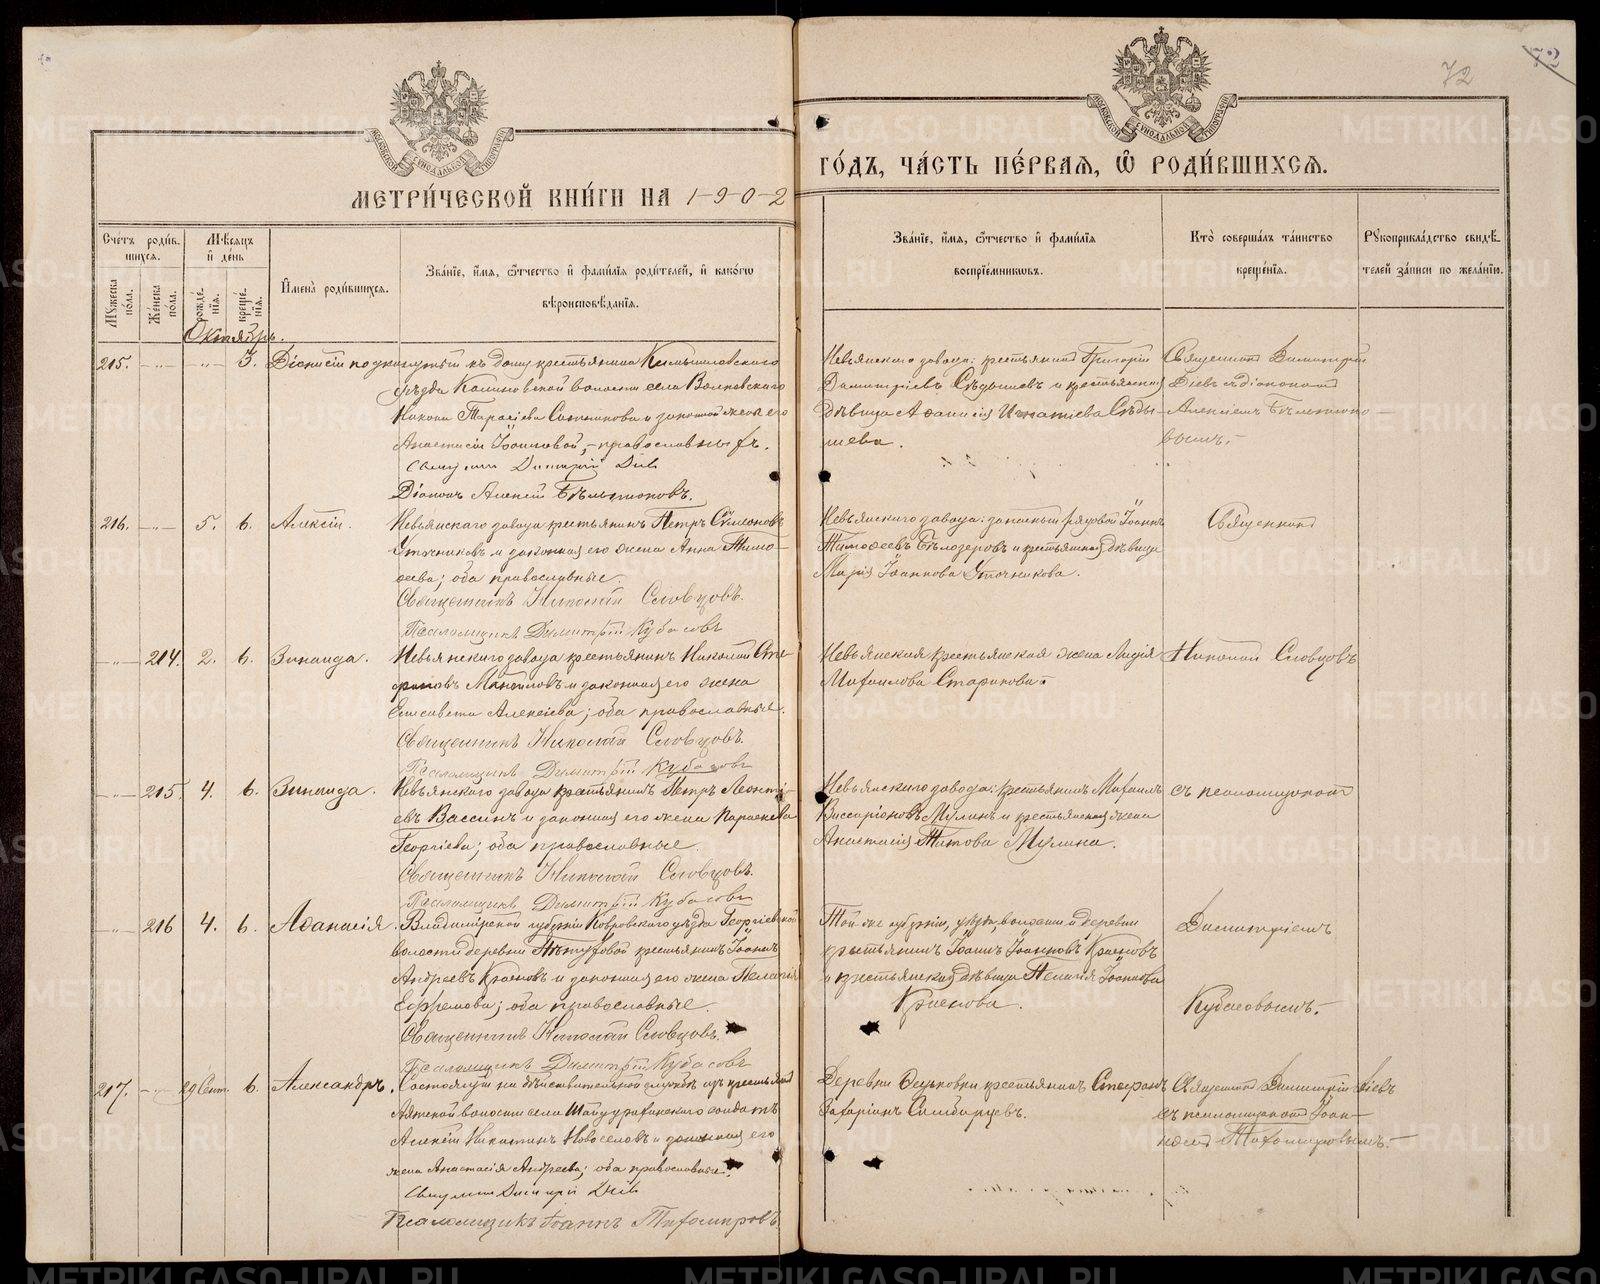 72
72
МЕТРИ́ЧЕСКОЙ КНИ́ГИ НА 1902
ГО́ДЪ, ЧА́СТЬ ПЕ́РВАЯ, Ѡ҆ РОДИ́ВШИХСЯ.
Сче́тъ роди́вшихся.
Мꙋ́жеска по́ла.
Же́нска по́ла.
Мѣ́сяцъ и҆ де́нь
рожде́нїя.
креще́нїя.
И҆мена̀ роди́вшихся.
Зва́нїе, и҆́мя, ѻ҆́тчество и҆ фами́лїя роди́телей, и҆ како́гѡ вѣроисповѣ́данїя.
Зва́нїе, и҆́мя, ѻ҆́тчество и҆ фами́лїя воспрїе́мникѡвъ.
Кто̀ соверша́лъ та́инство креще́нїя.
Рꙋкоприкла́дство свидѣ́телей за́писи по жела́нїю.
Октябрь.
215. 3. подкинутый къ дому крестьянина Камышловскаго
уѣзда волости села Волковскаго
Никона Тарасіева и законной жены его
Анастасіи Іоанновой, - православныхъ.
Димитрій
Діаконъ Алексій
Невьянскаго завода: крестьянинъ Григорій
Димитріевъ Сѣдышевъ и крестьянская
дѣвица Аѳанасія Игнатіева Сѣды-
шева.
Священникъ Димитрій
съ діакономъ
Алексіемъ
вымъ.
216. 5. 6. Алексій. Невьянскаго завода крестьянинъ Петръ Симеоновъ
Уточниковъ и законная его жена Анна Тимо-
ѳеева; оба православные.
Священникъ Николай Словцовъ.
Псаломщикъ Димитрій Кубасовъ
Невьянскаго завода: запасный рядовой Іоаннъ
Тимоѳеевъ Бѣлозеровъ и крестьянская дѣвица
Марія Іоаннова Уточникова.
Священникъ
214. 2. 6. Зинаида. Невьянскаго завода крестьянинъ Николай Сте-
фановъ и законная его жена
Елисавета Алексіева; оба православные.
Священникъ Николай Словцовъ.
Псаломщикъ Димитрій Кубасовъ
Невьянская крестьянская жена Лидія
Михаилова Старикова.
Николай Словцовъ
215. 4. 6. Зинаида. Невьянскаго завода крестьянинъ Петръ Леонті-
евъ Вассинъ и законная его жена Параскева
Георгіева; оба православные.
Священникъ Николай Словцовъ.
Псаломщикъ Димитрій Кубасовъ
Невьянскаго завода: крестьянинъ Михаилъ
Виссаріоновъ Мулинъ и крестьянская жена
Анастасія Титова Мулина.
съ псаломщикомъ
216 4. 6. Аѳанасія. Владимірской губерніи Ковровскаго уѣзда Георгіевской
волости деревни крестьянинъ Іоаннъ
Андреевъ Красновъ и законная его жена Пелагія
Ефремова; оба православные.
Священникъ Николай Словцовъ.
Псаломщикъ Димитрій Кубасовъ
Той же губерніи, уѣзда, волости и деревни
крестьянинъ Іоаннъ Іоанновъ Красновъ
и крестьянская дѣвица Пелагія Іоаннова
Краснова.
Димитріемъ
Кубасовымъ.
217. 29 Сент. 6. Александръ. Состоящій на дѣйствительной службѣ изъ крестьянъ
Аятской волости села солдатъ
Алексій Никитинъ Новоселовъ и законная его
жена Анастасія Андреева; оба православные.
Димитрій
Псаломщикъ Іоаннъ Тихомировъ.
Деревни Осиновки крестьянинъ Стефанъ
Захаріинъ Симбирцевъ.
Священникъ Димитрій
съ псаломщикомъ Іоан-
номъ Тихомировымъ.